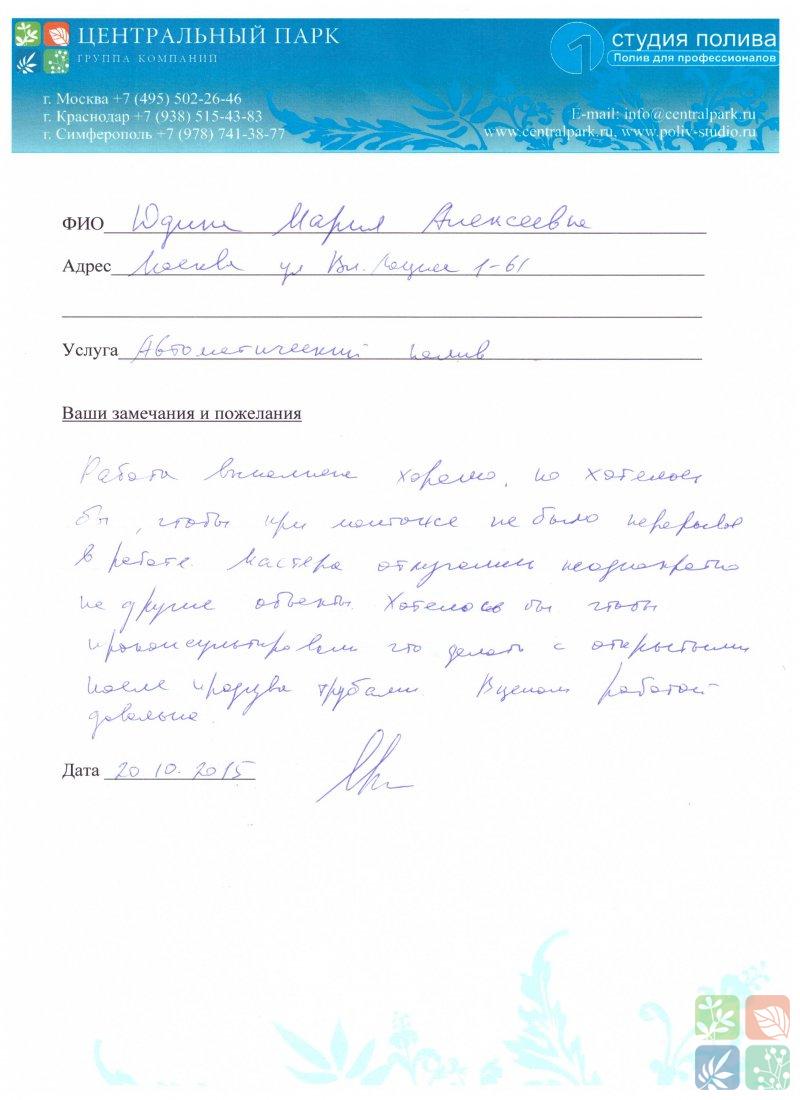 ЦЕНТРАЛЬНЫЙ ПАРК
ГРУППА КОМПАНИЙ
1 студия полива
Полив для профессионалов
г. Москва +7 (495) 502-26-46
г. Краснодар +7 (938) 515-43-83
г. Симферополь +7 (978) 741-38-77
E-mail: info@centralpark.ru
www.centralpark.ru, www.poliv-studio.ru
ФИО Юдина Мария Алексеевна
Адрес Москва ул 1-61
Услуга Автоматический полив
Ваши замечания и пожелания
Работа выполнена хорошо, но хотелось
бы, чтобы при монтаже не было перерывов
в работе. Мастера отлучались неоднократно
на другие объекты. Хотелось бы чтобы
проконсультировали что делать с открытыми
после трубами. В целом работой
довольна.
Дата 20.10.2015